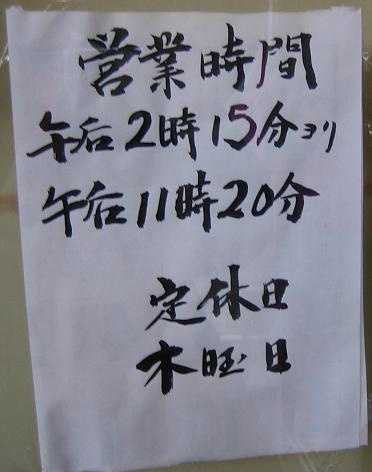 営業時間
午后2時15分ヨリ
午后11時20分
定休日
木旺日